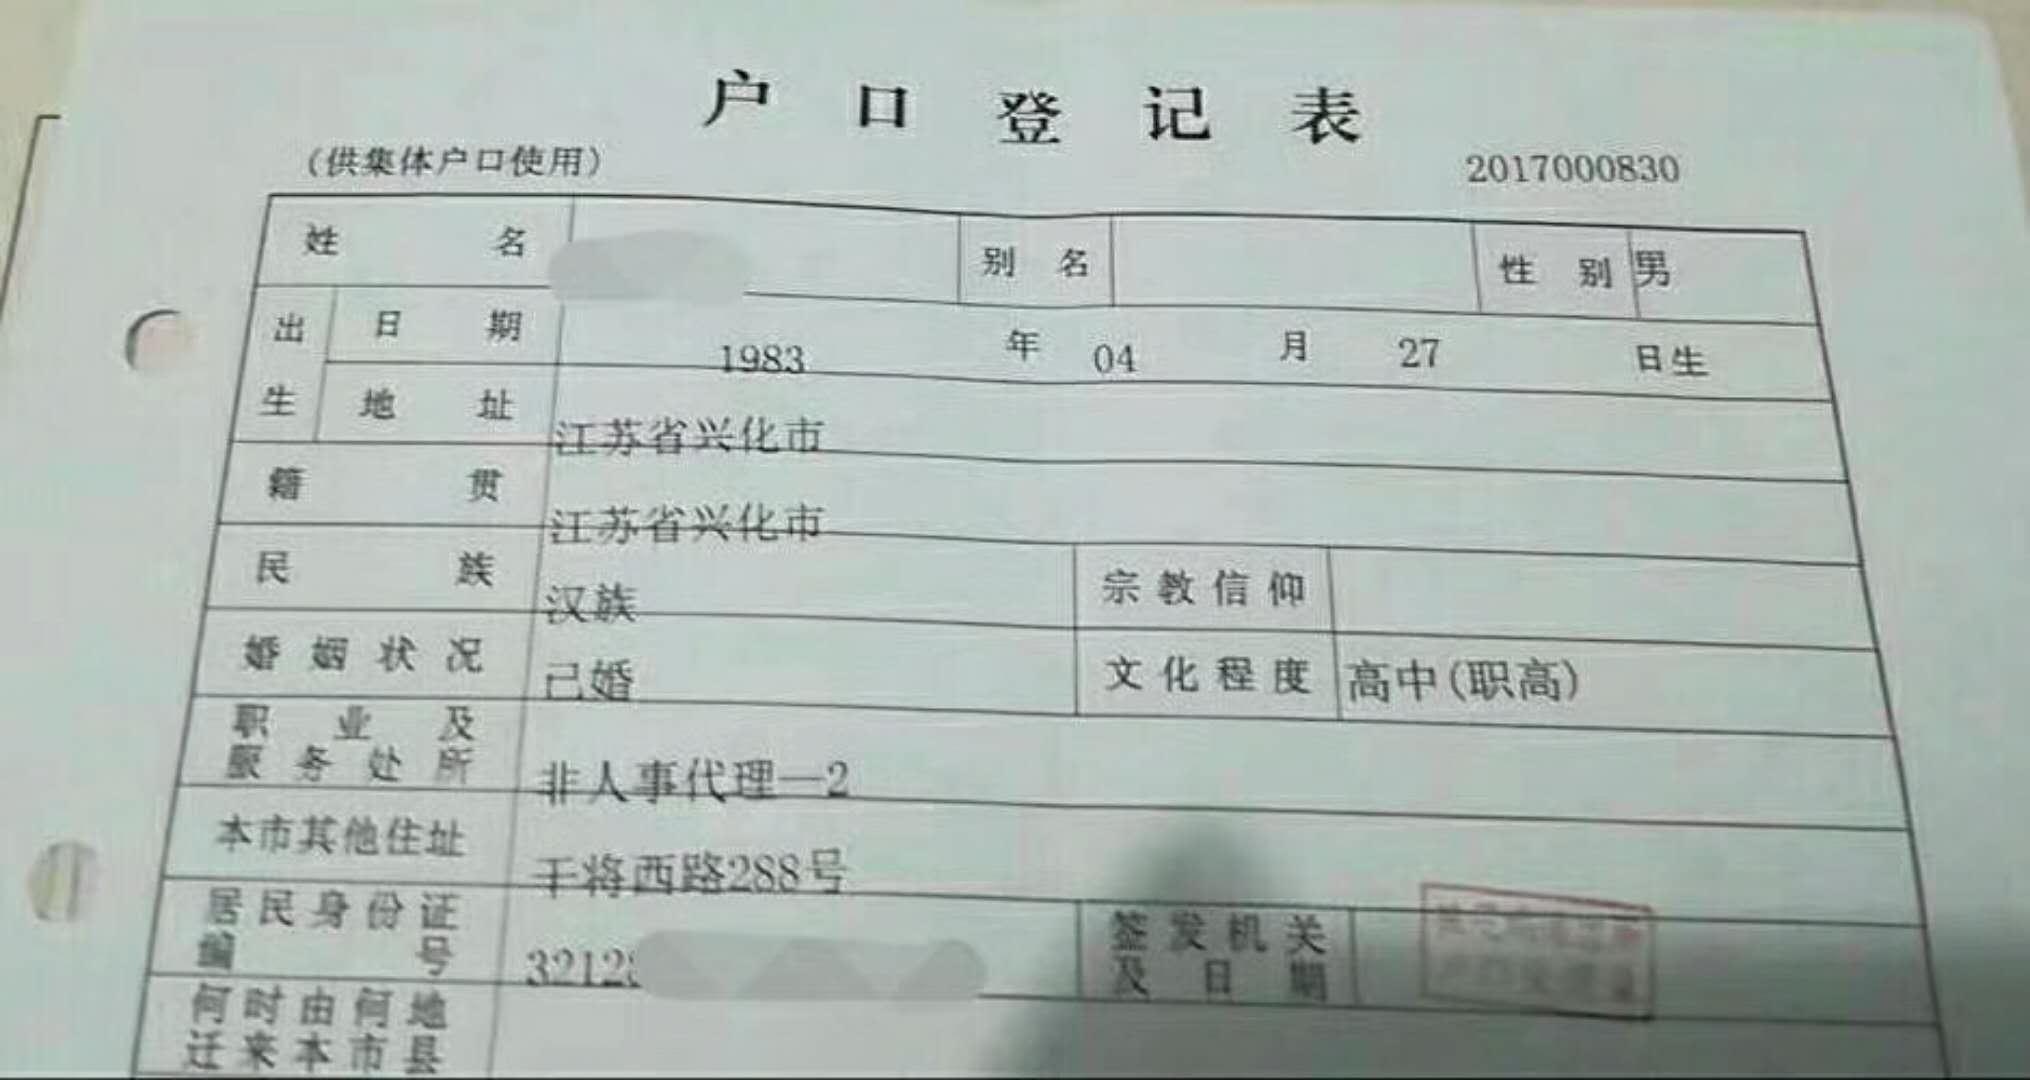 户口登记表
(供集体户口使用)
2017000830
姓名 别名 性别 男
出生 日期 1983 年 04 月 27 日生
地址 江苏省兴化市
籍贯 江苏省兴化市
民族 汉族 宗教信仰
婚姻状况 已婚 文化程度 高中(职高)
职业及
服务处所 非人事代理—2
本市其他住址 干将西路288号
居民身份证
编号 3212 签发机关
及日期
何时由何地
迁来本市县